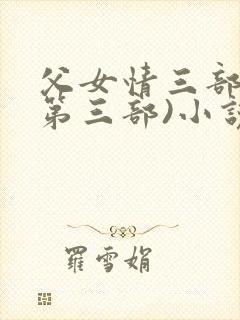 父女情三部
第三部)小說
羅雪娟